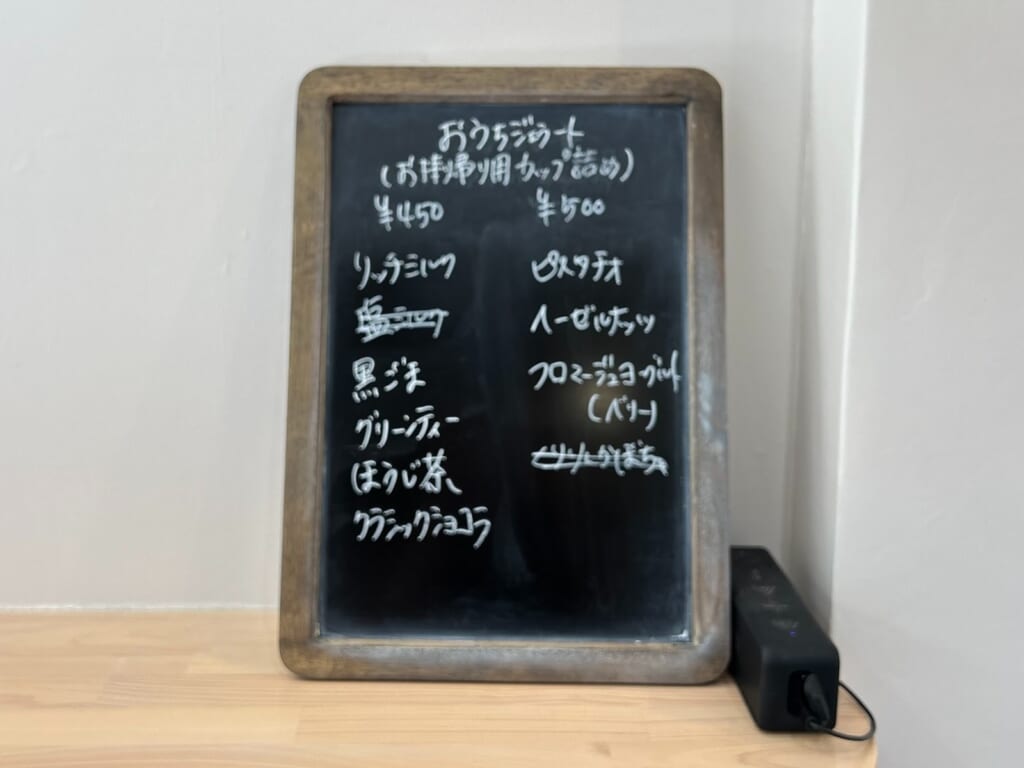 おうちジェラート
(お持ち帰り用カップ詰め)
¥450
リッチミルク
塩ミルク
黒ごま
グリーンティー
ほうじ茶
クラシックショコラ
¥500
ピスタチオ
ヘーゼルナッツ
フロマージュヨーグルト
(ベリー)